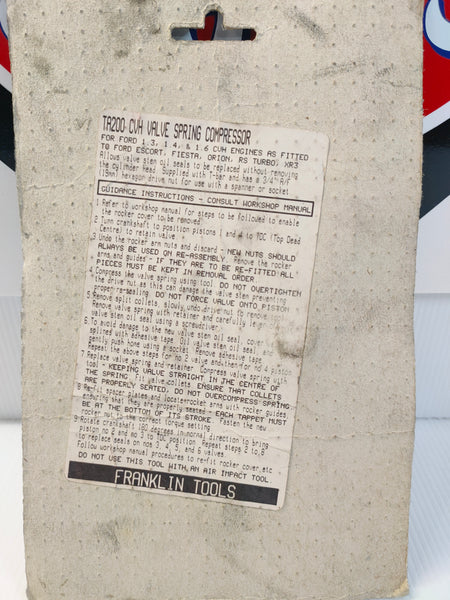 TA200 CVH VALVE SPRING COMPRESSOR
FOR FORD 1.3, 1.4, & 1.6 CVH ENGINES AS FITTED
TO FORD ESCORT, FIESTA, ORION, RS TURBO, XR3
Allows valve stem oil seals to be replaced without removing
the cylinder head. Supplied with T-bar and has a 3/4" A/F
(19mm) hexagon drive nut for use with a spanner or socket
GUIDANCE INSTRUCTIONS - CONSULT WORKSHOP MANUAL
1 Refer to workshop manual for steps to be followed to enable
the rocker cover to be removed.
2 Turn crankshaft to position pistons 1 and 4 to TDC (Top Dead
Centre) to retain valve.
3 Undo the rocker arm nuts and discard - NEW NUTS SHOULD
ALWAYS BE USED ON RE-ASSEMBLY. Remove the rocker
arms and guides - IF THEY ARE TO BE RE-FITTED ALL
PIECES MUST BE KEPT IN REMOVAL ORDER
4. Compress the valve spring using tool. DO NOT OVERTIGHTEN
the drive nut as this can damage the valve stem preventing
proper re-sealing. DO NOT FORCE VALVE ONTO PISTON
5 Remove split collets, slowly undo drive nut to remove tool.
Remove valve spring with retainer and carefully
valve stem oil seal using a screwdriver.
6. To avoid damage to the new valve stem oil seal, cover
splines with adhesive tape. Oil valve stem oil seal and
gently push home using a socket. Remove adhesive tape.
Repeat the above steps for no 2 valve and then for no 4 piston
7 Replace valve spring and retainer. Compress valve spring with
tool - KEEPING VALVE STRAIGHT IN THE CENTRE OF
THE SPRING. Fit valve collets. ENSURE THAT COLLETS
ARE PROPERLY SEATED. DO NOT OVERCOMPRESS SPRING
8 Re-fit spacer plates and loose rocker arms with rocker guides
ensuring that they are properly seated - EACH TAPPET MUST
BE AT THE BOTTOM OF ITS STROKE. Fasten the new
rocker nut to the correct torque setting
9 Rotate crankshaft 180 degrees in normal direction to bring
piston no 2 and no 3 to TDC position. Repeat steps 2 to 8
to replace seals on nos 3, 4, 5, and 6 valves
Follow workshop manual procedures to re-fit rocker cover etc
DO NOT USE THIS TOOL WITH AN AIR IMPACT TOOL
FRANKLIN TOOLS